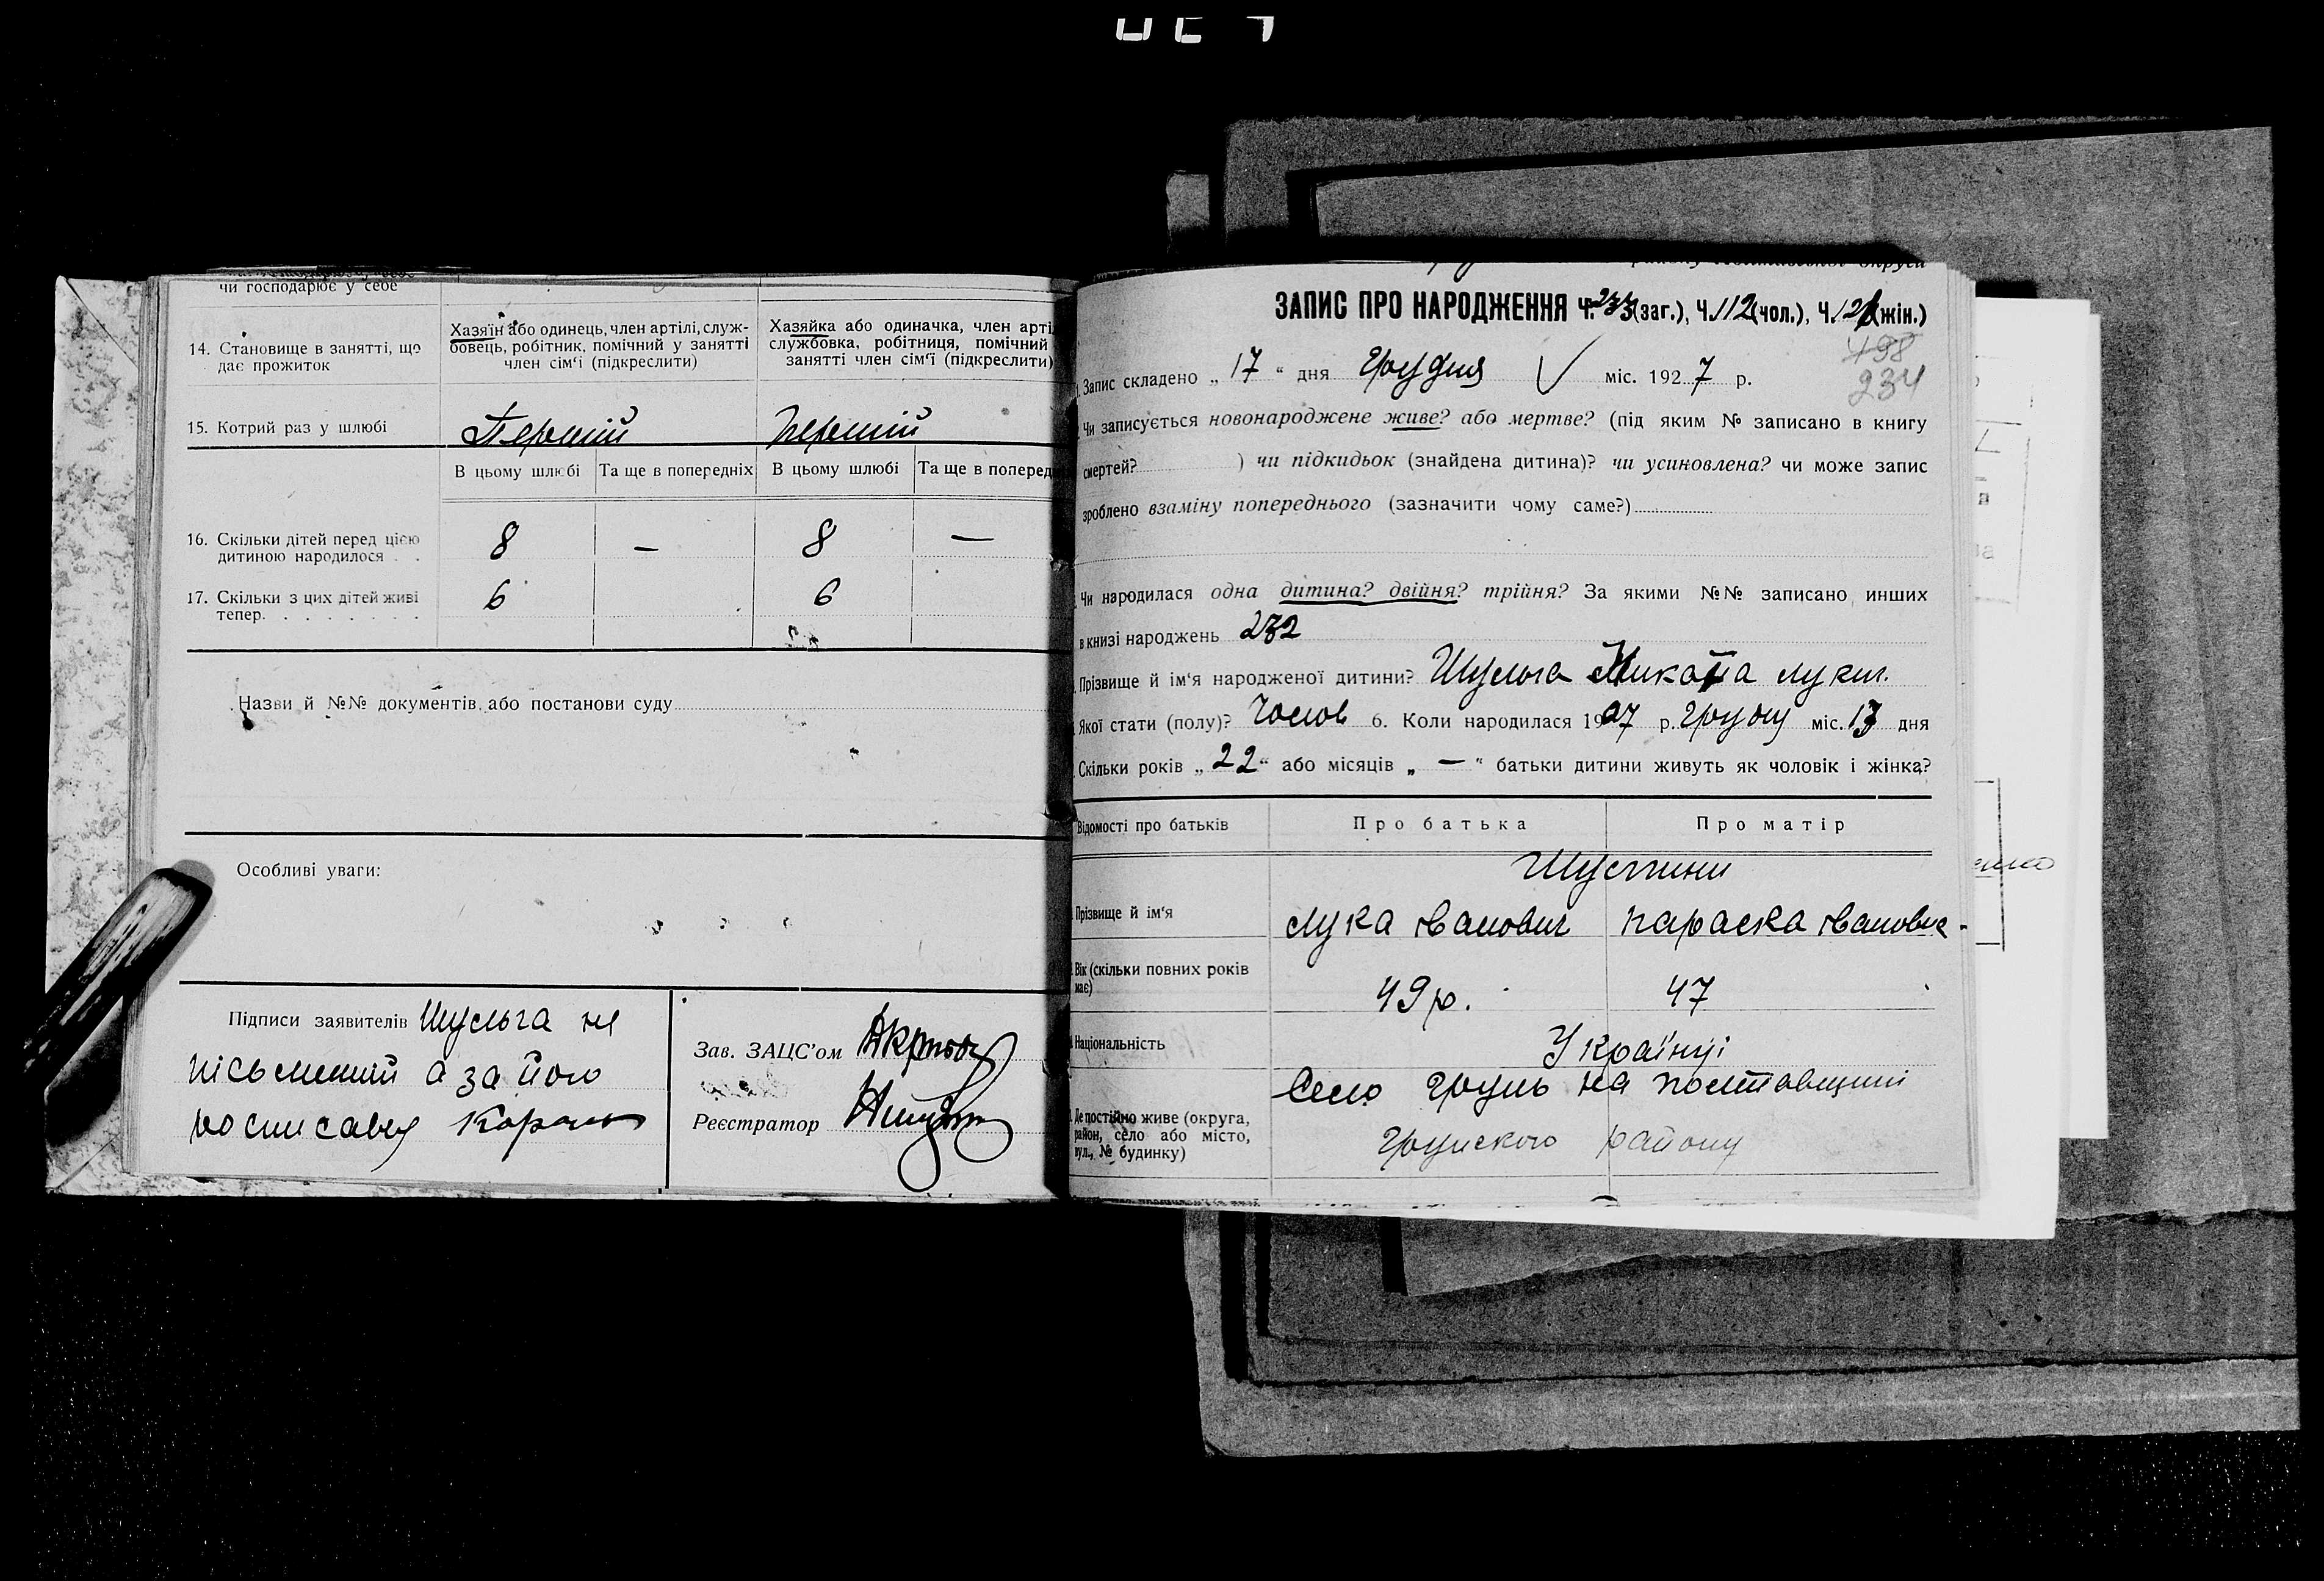 чи господарює у себе
14. Становище в занятті, що дає прожиток
Хазяїн або одинець, член артілі, служ-
бовець, робітник, помічний у занятті
член сім'ї (підкреслити)
Хазяйка або одиначка, член арті
службовка, робітниця, помічний
занятті член сім'ї (підкреслити)
15. Котрий раз у шлюбі Перший Перший
В цьому шлюбі Та ще в попередніх В цьому шлюбі Та ще в поперед
16. Скільки дітей перед цією дитиною народилося . . 8 — 8 —
17. Скільки з цих дітей живі тепер. . . . . . . . 6 6
Назви й №№ документів або постанови суду
Особливі уваги:
Підписи заявителів Шульга не
письмений а за його
росписавсь
Зав. ЗАЦС'ом
Реєстратор
району Полтавської округи
ЗАПИС ПРО НАРОДЖЕННЯ Ч. 233 (заг.), Ч. 112 (чол.), Ч. 121 (жін.)
498
234
Запис складено „ 17 “ дня Грудня міс. 1927 р.
Чи записується новонароджене живе? або мертве? (під яким № записано в книгу
смертей? ) чи підкидьок (знайдена дитина)? чи усиновлена? чи може запис
зроблено взаміну попереднього (зазначити чому саме?)
Чи народилася одна дитина? двійня? трійня? За якими №№ записано инших
в книзі народжень 232
Прізвище й ім'я народженої дитини? Шульга Лукич.
Якої стати (полу)? Чолов 6. Коли народилася 1927 р. Грудня міс. 13 дня
Скільки років „ 22 “ або місяців „ — “ батьки дитини живуть як чоловік і жінка?
Відомості про батьків Про батька Про матір
Прізвище й ім'я Лука Іванович Параска Івановна
Вік (скільки повних років має) 49 р. 47
Національність Українці
Де постійно живе (округа, район, село або місто, вул., № будинку)
Село Грунь на Полтавщині
Грунського району